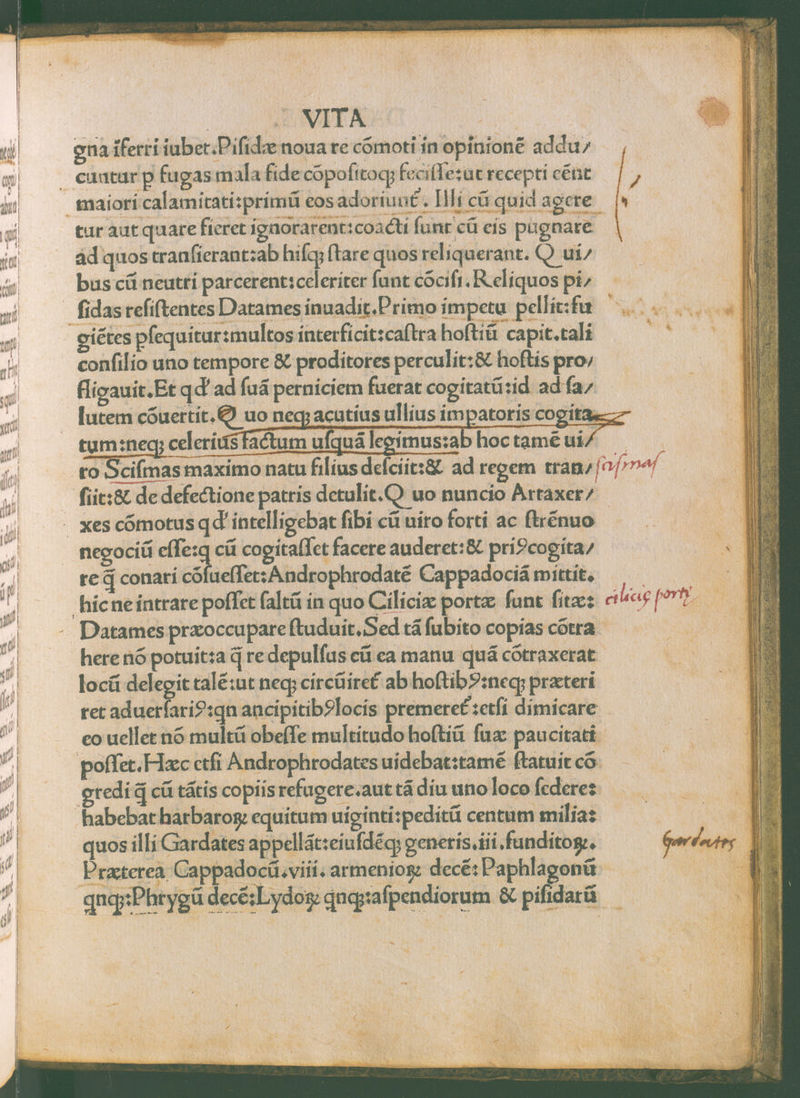 VITA
gna iferri iubet.Pisidæ noua re cõmoti in opinionẽ addu/
cuntur p fugas mala fide cõpositoq; fecisse:ut recepti eẽnt
maiori calamitati:primũ eos adoriunt᷑. Illi cũ quid agere
tur aut quare fieret ignorarent:coacti sunt cũ eis pugnare
ad quos transierant:ab hisq; stare quos reliquerant. Q ui/
bus cũ neutri parcerent:celeriter sunt cõcisi.Reliquos pi/
sidas resistentes Datames inuadit.Primo impetu pellit:fu
giẽtes psequitur:multos interficit:castra hostiũ capit.tali
consilio uno tempore & proditores perculit:& hostis pro/
fligauit.Et qd' ad suã perniciem fuerat cogitatũ:id ad sa/
lutem cõuertit.Q uo neq; acutius ullius impatoris cogita
tum:neq; celerius factum usquã legimus:ab hoc tamẽ ui/
ro Scismas maximo natu filius desciit:& ad regem tran/
siit:& de defectione patris detulit.Q uo nuncio Artaxer/
xes cõmotus qd' intelligebat sibi cũ uiro forti ac strẽnuo
negociũ esse:q cũ cogitasset facere auderet:& priꝰcogita/
re q̃ conari cõsuesset:Androphrodatẽ Cappadociã mittit.
hic ne intrare posset saltũ in quo Ciliciæ portæ sunt sitæ:
Datames præoccupare studuit.Sed tã subito copias cõtra
here nõ potuit:a q̃ re depulsus cũ ea manu quã cõtraxerat
locũ delegit talẽ:ut neq; circũiret᷑ ab hostibꝰ:neq; præteri
ret aduersariꝰ:qn ancipitibꝰlocis premeret᷑:etsi dimicare
eo uellet nõ multũ obesse multitudo hostiũ suæ paucitati
posset.Hæc etsi Androphrodates uidebat:tamẽ statuit cõ
gredi q̃ cũ tãtis copiis refugere.aut tã diu uno loco sedere:
habebat barbaroꝝ equitum uiginti:peditũ centum milia:
quos illi Gardates appellãt:eiusdẽq; generis.iii.funditoꝝ.
Præterea Cappadocũ.viii. armenioꝝ decẽ:Paphlagonũ
qnq;:Phrygũ decẽ:Lydoꝝ qnq;:aspendiorum & pisidarũ
cilicię portę
Gardates